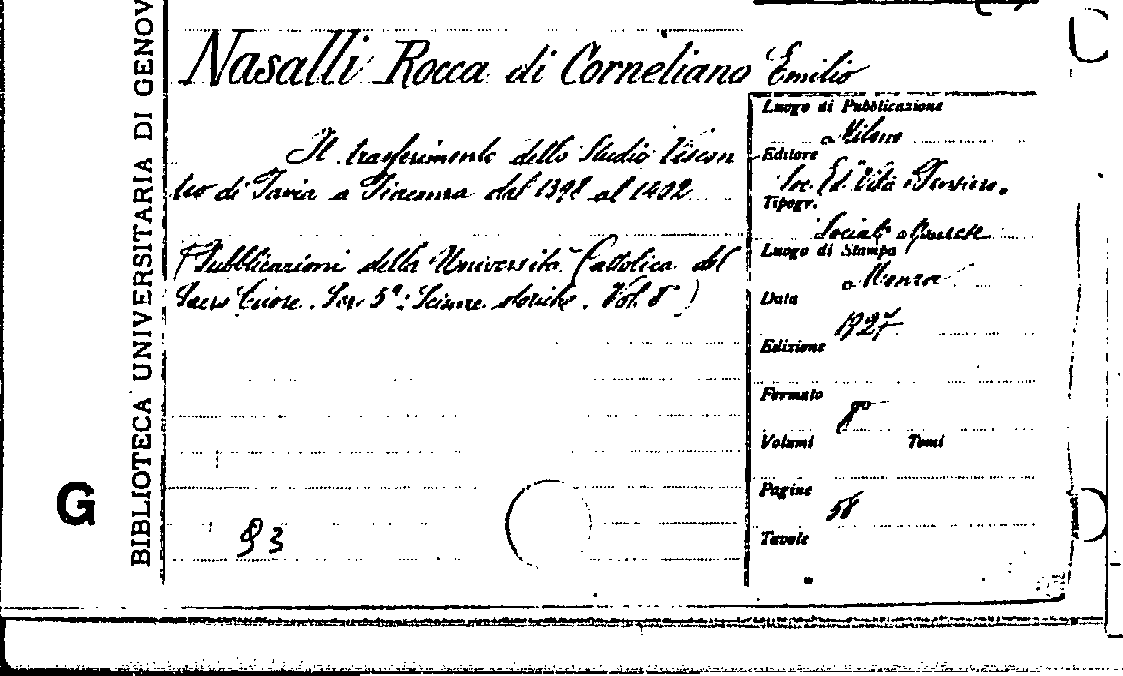 BIBLIOTECA UNIVERSITARIA DI GENOV
Nasalli Rocca di Corneliano Emilio
Il trasferimento dello Studio Viscon
teo di Pavia a Piacenza dal 1398 al 1402
(Pubblicazioni della Università Cattolica del
Sacro Cuore. Ser. 5ª: Scienze storiche. Vol. 8)
93
G
Luogo di Pubblicazione
Milano
Editore
Soc. Ed. Vita e Pensiero.
Tipogr.
Sociale
Luogo di Stampa
Monza
Data
1927
Edizione
Formato
8º
Volumi Tomi
Pagine
58
Tavole